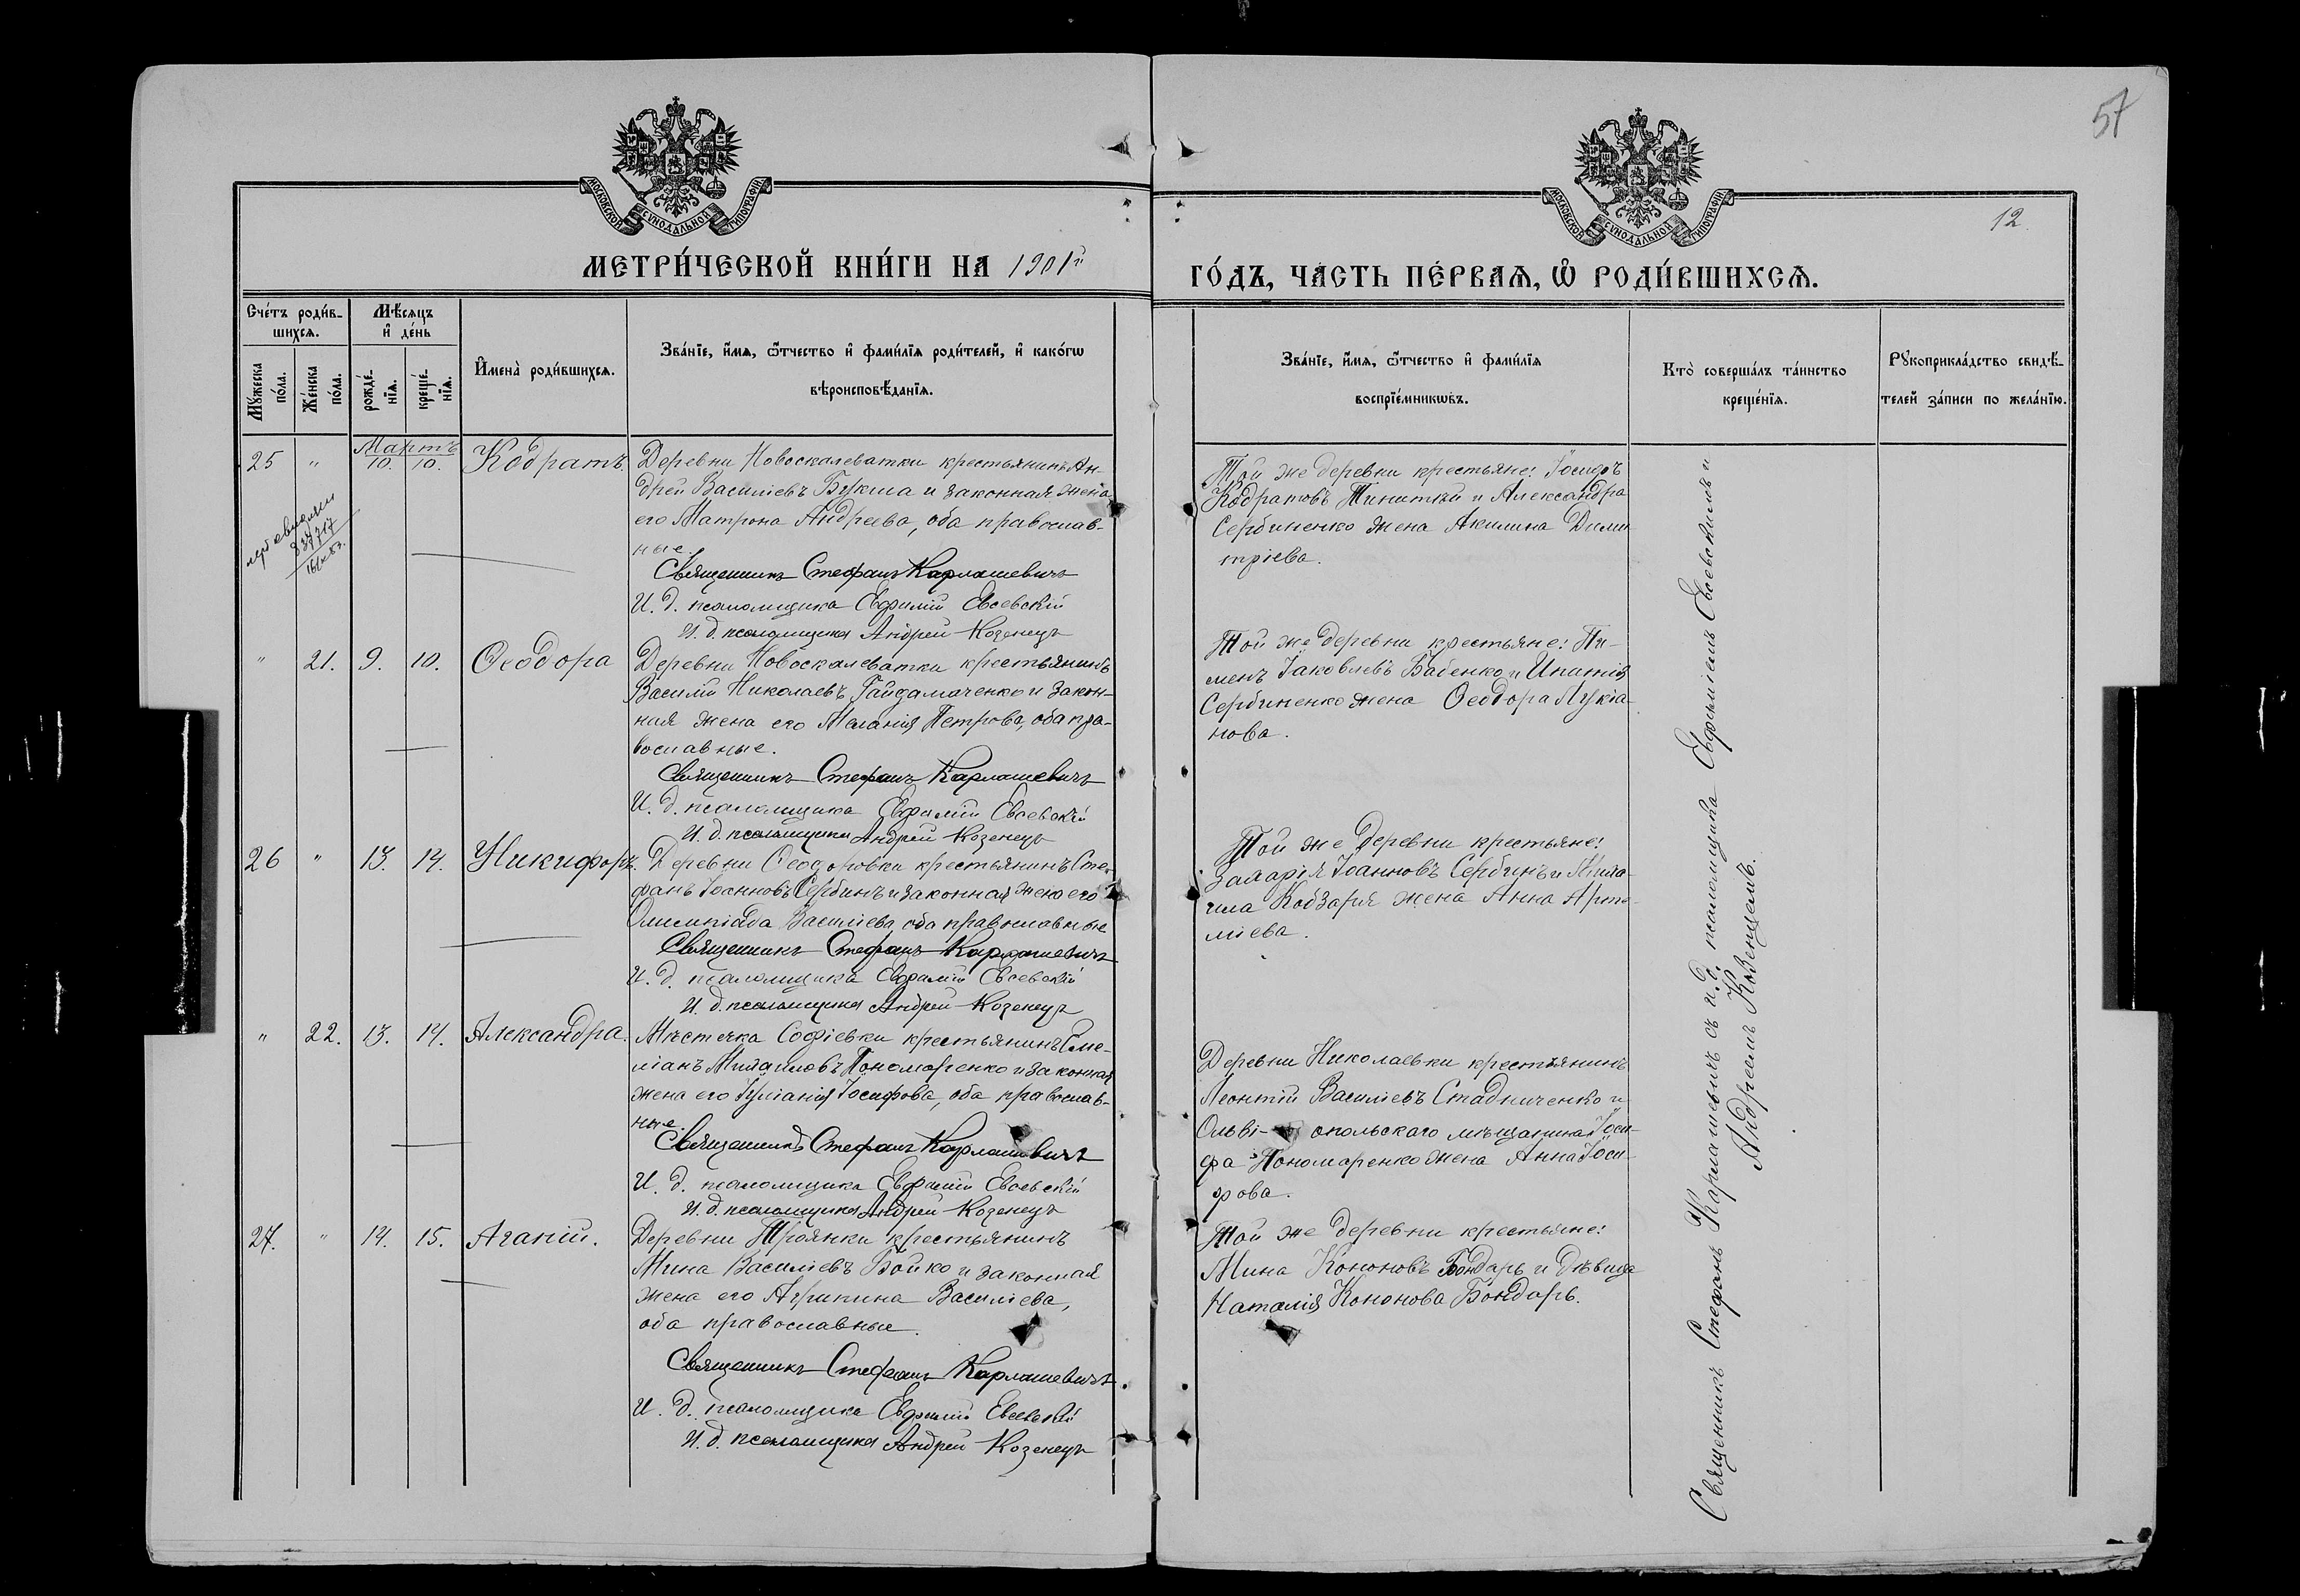 57
МОСКОВСКОЙ СУНОДАЛЬНОЙ ТИПОГРАФІИ
МОСКОВСКОЙ СУНОДАЛЬНОЙ ТИПОГРАФІИ
12
МЕТРИ́ЧЕСКОЙ КНИ́ГИ НА 1901й
ГО́ДЪ, ЧА́СТЬ ПЕ́РВАѦ, Ѽ РОДИ́ВШИХСѦ.
Сче́тъ роди́в-
шихсѧ.
Мꙋ́жеска по́ла.
Же́нска по́ла.
Мѣ́сѧцъ
и҆ де́нь
рожде́-нїѧ.
креще́-нїѧ.
И҆мена̀ роди́вшихсѧ.
Зва́нїе, и҆́мѧ, ѻ҆́тчество и҆ фами́лїѧ роди́телей, и҆ како́гѡ
вѣроисповѣ́данїѧ.
Зва́нїе, и҆́мѧ, ѻ҆́тчество и҆ фами́лїѧ
воспрїе́мникѡвъ.
Кто̀ соверша́лъ та́инство
креще́нїѧ.
Рꙋкоприкла́дство свидѣ́-
телей за́писи по жела́нїю.
Мартъ
25 " 10. 10. Кодратъ.
Деревни Новоскалеватки крестьянинъ Ан-
дрей Василіевъ Букша и законная жена
его Матрона Андреева, оба православ-
ные.
Священникъ Стефанъ Карлашевичъ
И. д. псаломщика Евфимій Евсевскій
И. д. псаломщика Андрей Козенецъ
Той же деревни крестьяне: Іосифъ
Кодратовъ и Александра
Сербиненко жена Акилина Дими-
тріева.
" 21. 9. 10. Ѳеодора
Деревни Новоскалеватки крестьянинъ
Василій Николаевъ Гайдамаченко и закон-
ная жена его Маланія Петрова, оба пра-
вославные.
Священникъ Стефанъ Карлашевичъ
И. д. псаломщика Евфимій Евсевскій
И. д. псаломщика Андрей Козенецъ
Той же деревни крестьяне: Пи-
менъ Іаковлевъ Бабенко и Ипатія
Сербиненко жена Ѳеодора Лукіа-
нова.
26 " 13. 14. Никифоръ.
Деревни Ѳеодоровки крестьянинъ Сте-
фанъ Іоанновъ Сербинъ и законная жена его
Олимпіада Василіева, оба православные
Священникъ Стефанъ Карлашевичъ
И. д. псаломщика Евфимій Евсевскій
И. д. псаломщика Андрей Козенецъ
Той же деревни крестьяне:
Захарія Іоанновъ Сербинъ и Миха-
ила Кобзаря жена Анна Арте-
міева.
" 22. 13. 14. Александра.
Мѣстечка Софіевки крестьянинъ Еме-
ліанъ Михаиловъ Пономаренко и законная
жена его Іуліанія Іосифова, оба православ-
ные.
Священникъ Стефанъ Карлашевичъ
И. д. псаломщика Евфимій Евсевскій
И. д. псаломщика Андрей Козенецъ
Деревни Николаевки крестьянинъ
Леонтій Василіевъ Стадниченко и
Ольві- опольскаго мѣщанина Іоси-
фа Пономаренко жена Анна Іоси-
фова.
27. " 14. 15. Агапій.
Деревни Троянки крестьянинъ
Мина Василіевъ Бойко и законная
жена его Агрипина Василіева,
оба православные.
Священникъ Стефанъ Карлашевичъ
И. д. псаломщика Евфимій Евсевскій
И. д. псаломщика Андрей Козенецъ
Той же деревни крестьяне:
Мина Кононовъ Бондарь и дѣвица
Наталія Кононова Бондарь.
Священникъ Стефанъ Карлашевичъ съ и. д. псаломщика Евфиміемъ Евсевскимъ и
Андреемъ Козенцемъ.